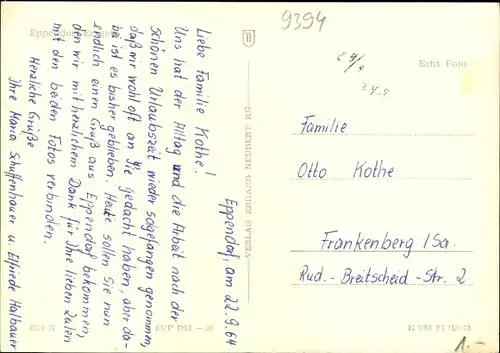 9394
Eppendorf, am 22.9.64
Liebe Familie Kothe!
Uns hat der Alltag und die Arbeit nach der
schönen Urlaubszeit wieder so gefangen genommen,
daß wir wohl oft an Sie gedacht haben, aber da-
bei ist es bisher geblieben. Heute sollen Sie nun
endlich einen Gruß aus Eppendorf bekommen,
den wir mit herzlichem Dank für Ihre lieben Zeilen
mit den beiden Fotos verbinden.
Herzliche Grüße
Ihre Maria Schuffenhauer u. Elfriede Halbauer
Eppendorf
VERLAG ERHARD NEUBERT KG
Echt Foto
Familie
Otto Kothe
Frankenberg /Sa.
Rud. - Breitscheid - Str. 2
EVP DM -.20
1.-